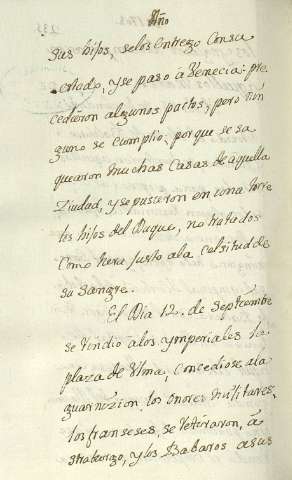 Año
sus hijos, selos entrego con su
estado, y se paso á Venecia: pre
cedieron algunos pactos, pero nin
guno se cumplio, porque se sa
quearon muchas Casas de aquella
Ziudad, y se pusieron en una torre
los hijos del Duque, no tratados
como hera justo ala celsitud de
su sangre.
El Dia 12. de Septiembre
se rindio alos ymperiales la
plaza de Ulma, concediose ala
guarnizion, los onores militares,
los franseses, se retiraron, á
straburgo, y los Babaros asus